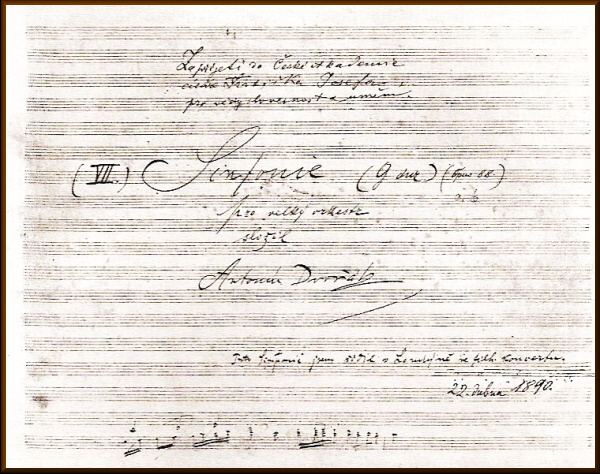 Za přijetí do České Akademie
císaře Františka Josefa
pro vědy slovesnost a umění.
(VII.) Sinfonie (G dur) (Opus 88.)
pro velký orkestr
složil
Antonín Dvořák
Tuto Sinfonii jsem řídil v Londýně ve filh. koncertu.
22. dubna 1890.